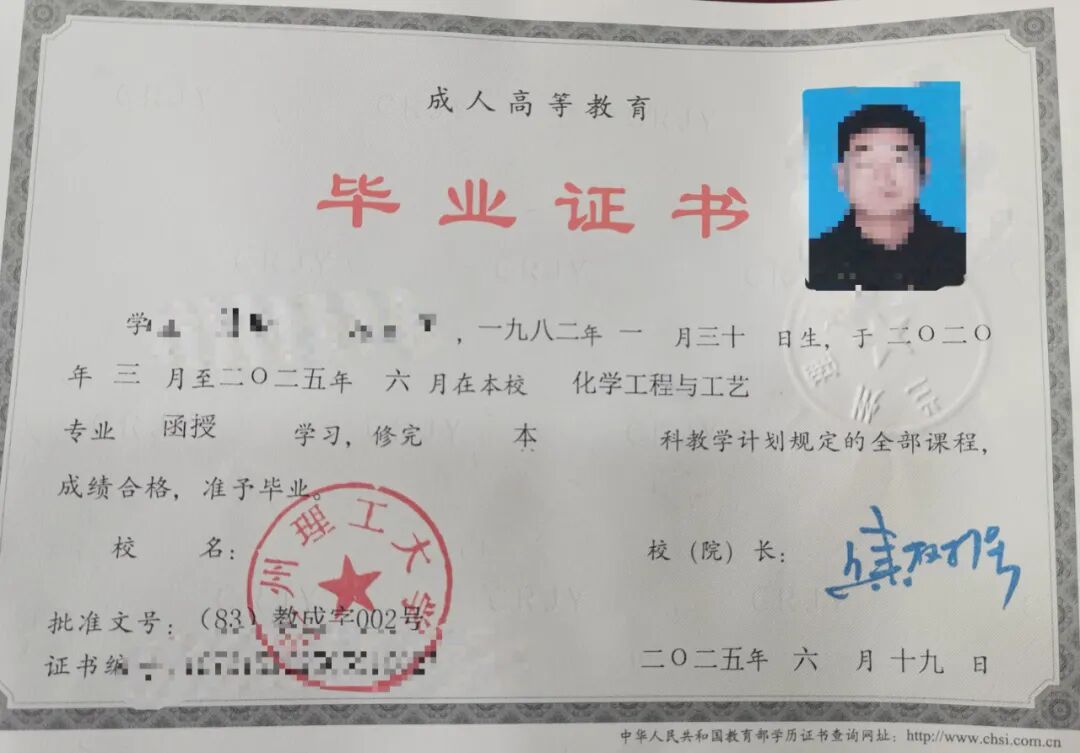 成人高等教育
毕业证书
学
，一九八二年 一 月三十 日生，于 二〇二〇
年 三 月至二〇二五年 六 月在本校 化学工程与工艺
专业 函授 学习，修完 本 科教学计划规定的全部课程，
成绩合格，准予毕业。
州理工大学
校 名：
校（院）长：
批准文号：（83）教成字002号
证书编
二〇二五年 六 月 十九 日
中华人民共和国教育部学历证书查询网址：http://www.chsi.com.cn